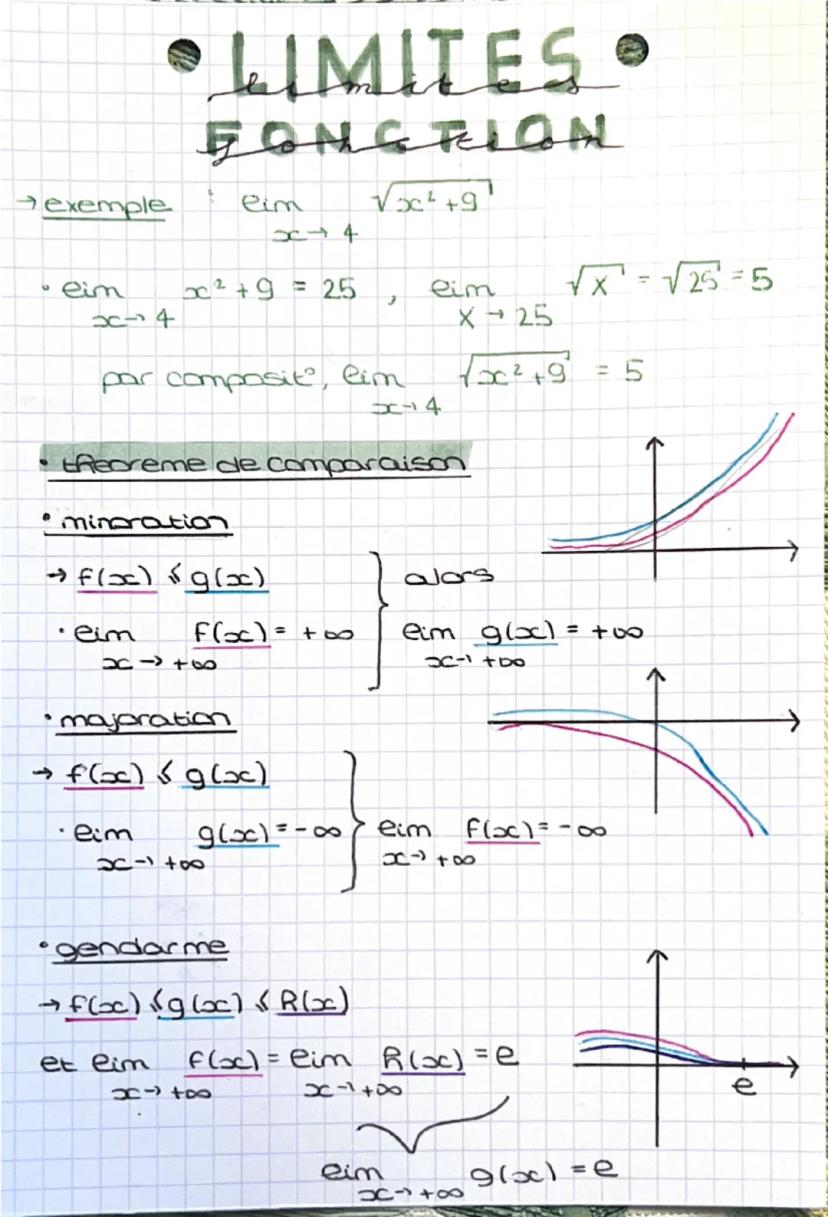 LIMITES
limites
FONCTION
fonction
→ exemple : lim √(x²+9)
x→4
· lim x²+9 = 25 , lim √X = √25 = 5
x→4 X→25
par composit°, lim √(x²+9) = 5
x→4
· théoreme de comparaison
· minoration
→ f(x) ≤ g(x) } alors
· lim f(x) = +∞ lim g(x) = +∞
x→+∞ x→+∞
· majoration
→ f(x) ≤ g(x)
· lim g(x) = -∞ } lim f(x) = -∞
x→+∞ x→+∞
· gendarme
→ f(x) ≤ g(x) ≤ h(x)
et lim f(x) = lim h(x) = l
x→+∞ x→+∞
l
lim g(x) = l
x→+∞